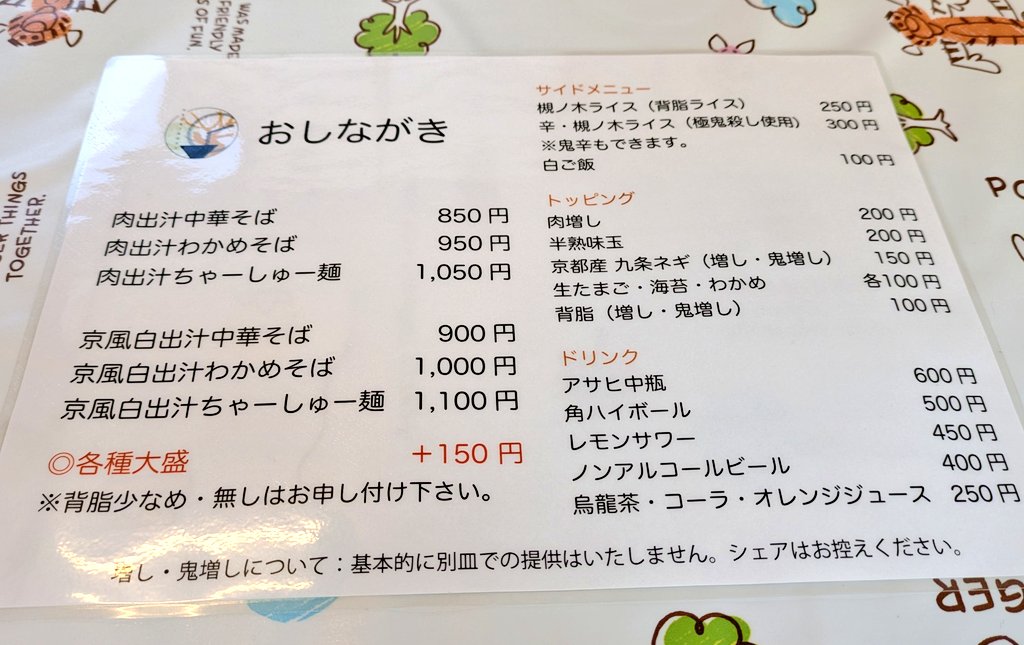 WAS MADE
FRIENDLY
S OF FUN.
THINGS
TOGETHER.
おしながき
肉出汁中華そば 850円
肉出汁わかめそば 950円
肉出汁ちゃーしゅー麺 1,050円
京風白出汁中華そば 900円
京風白出汁わかめそば 1,000円
京風白出汁ちゃーしゅー麺 1,100円
◎各種大盛 +150円
※背脂少なめ・無しはお申し付け下さい。
サイドメニュー
槻ノ木ライス（背脂ライス） 250円
辛・槻ノ木ライス（極鬼殺し使用） 300円
※鬼辛もできます。
白ご飯 100円
トッピング
肉増し 200円
半熟味玉 200円
京都産 九条ネギ（増し・鬼増し） 150円
生たまご・海苔・わかめ 各100円
背脂（増し・鬼増し） 100円
ドリンク
アサヒ中瓶 600円
角ハイボール 500円
レモンサワー 450円
ノンアルコールビール 400円
烏龍茶・コーラ・オレンジジュース 250円
増し・鬼増しについて：基本的に別皿での提供はいたしません。シェアはお控えください。